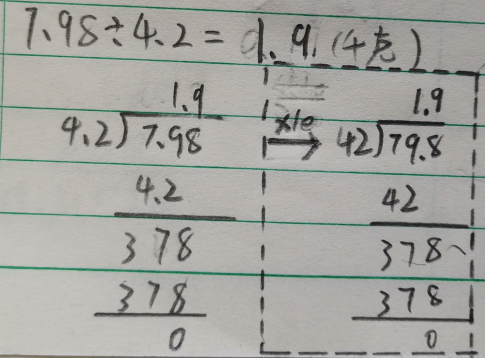 7.98÷4.2=1.9(千克)
1.9
4.2)7.98
4.2
378
378
0
x10
1.9
42)79.8
42
378
378
0